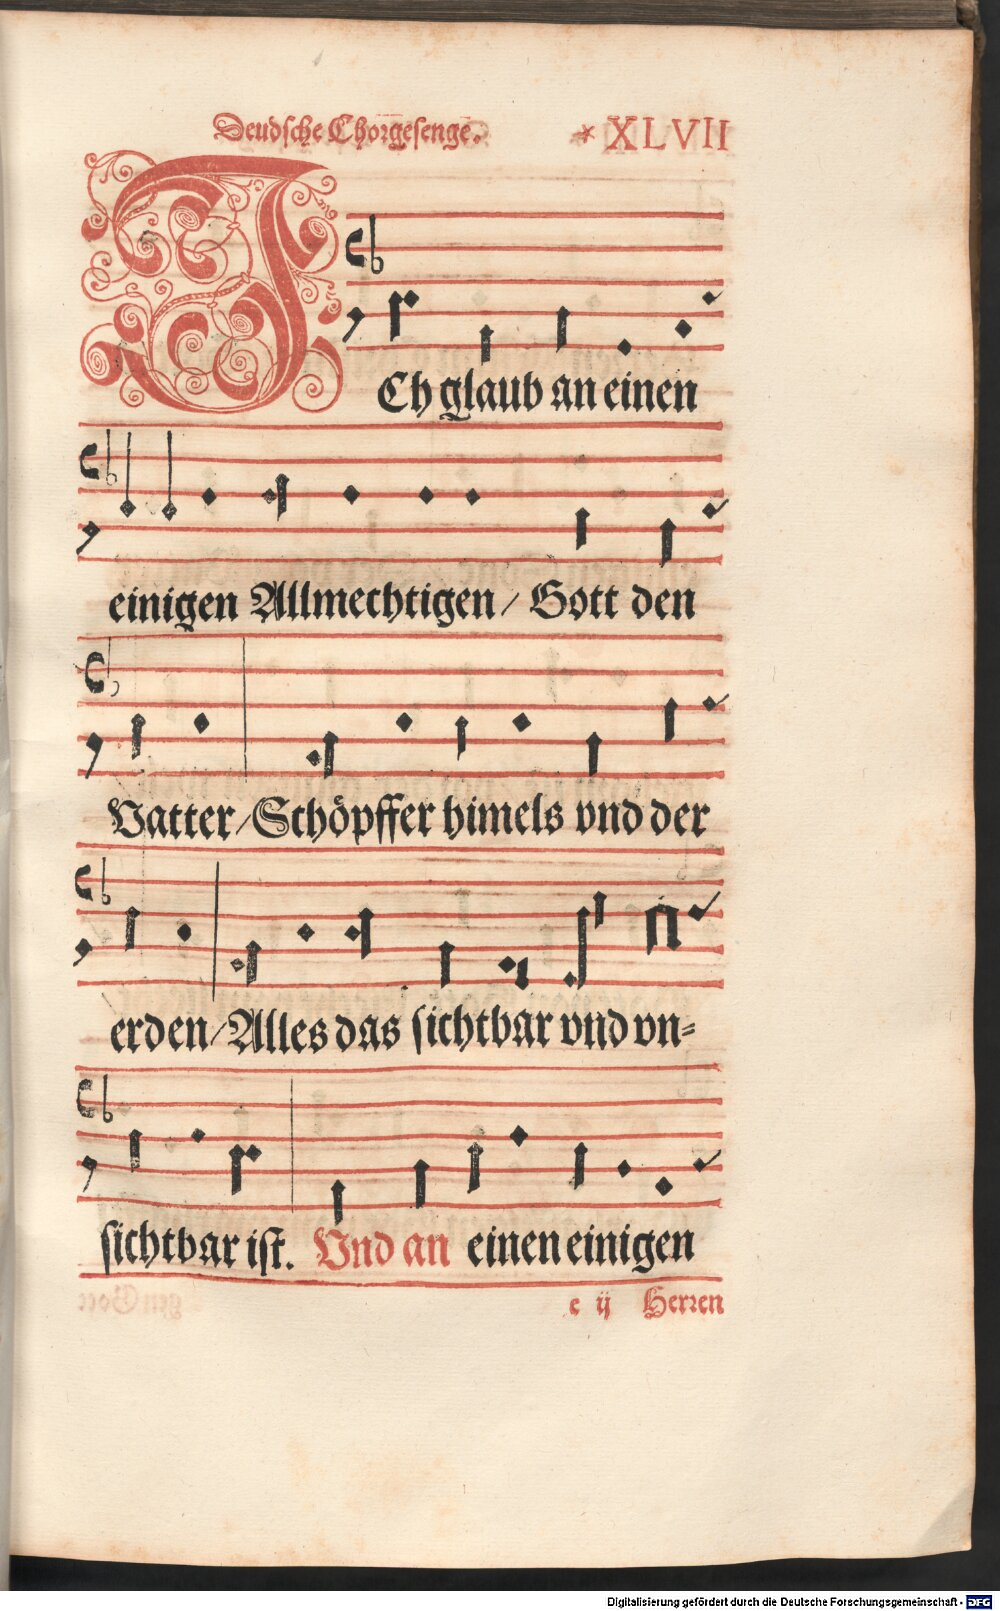 Deudsche Chorgesenge. * XLVII
ICh glaub an einen
einigen Allmechtigen/ Gott den
Vatter/Schöpffer himels vnd der
erden/Alles das sichtbar vnd vn⸗
sichtbar ist. Vnd an einen einigen
e ij Herren
Digitalisierung gefördert durch die Deutsche Forschungsgemeinschaft - DFG